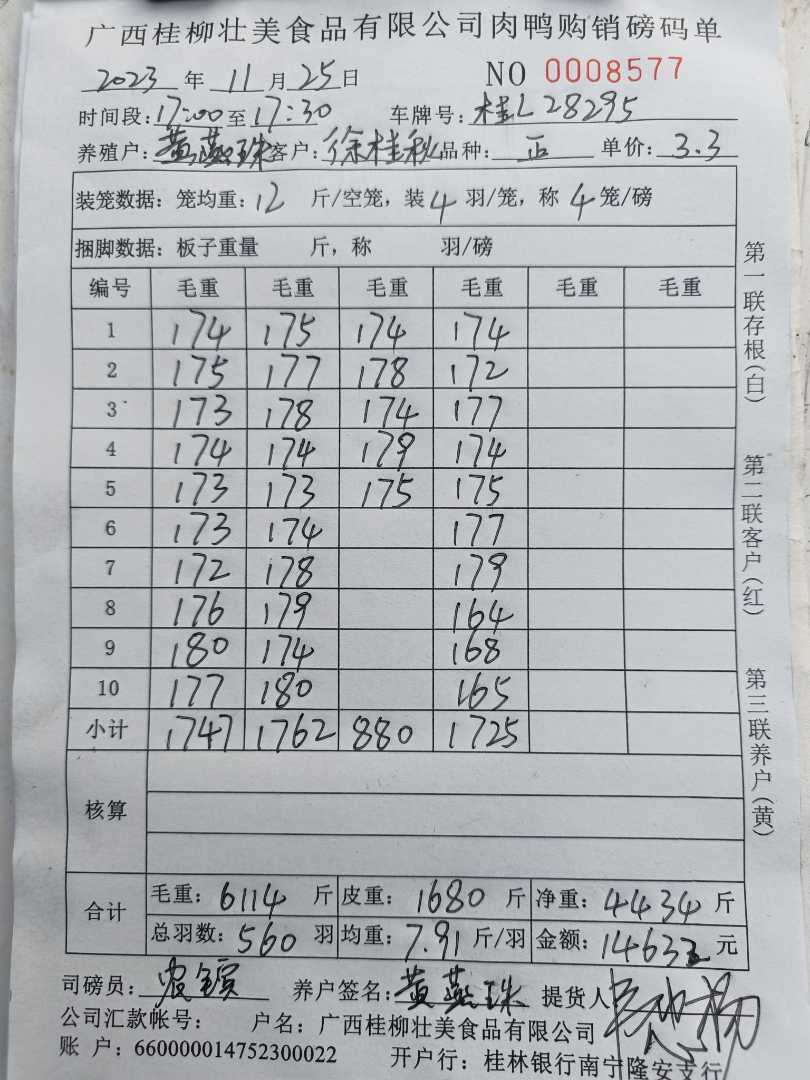 广西桂柳壮美食品有限公司肉鸭购销磅码单
2023 年 11 月 25 日 NO 0008577
时间段:17:00 至 17:30 车牌号:桂L28295
养殖户:黄燕珠 客户:徐桂秋 品种:正 单价:3.3
装笼数据:笼均重:12 斤/空笼,装 4 羽/笼,称 4 笼/磅
捆脚数据:板子重量 斤,称 羽/磅
编号 毛重 毛重 毛重 毛重 毛重 毛重
1 174 175 174 174
2 175 177 178 172
3 173 178 174 177
4 174 174 179 174
5 173 173 175 175
6 173 174 177
7 172 178 179
8 176 179 164
9 180 174 168
10 177 180 165
小计 1747 1762 880 1725
核算
合计 毛重:6114 斤 皮重:1680 斤 净重:4434 斤
总羽数:560 羽 均重:7.91 斤/羽 金额:14632 元
司磅员: 养户签名:黄燕珠 提货人
公司汇款帐号: 户名:广西桂柳壮美食品有限公司
账 户:660000014752300022 开户行:桂林银行南宁隆安支行
第一联存根(白)
第二联客户(红)
第三联养户(黄)